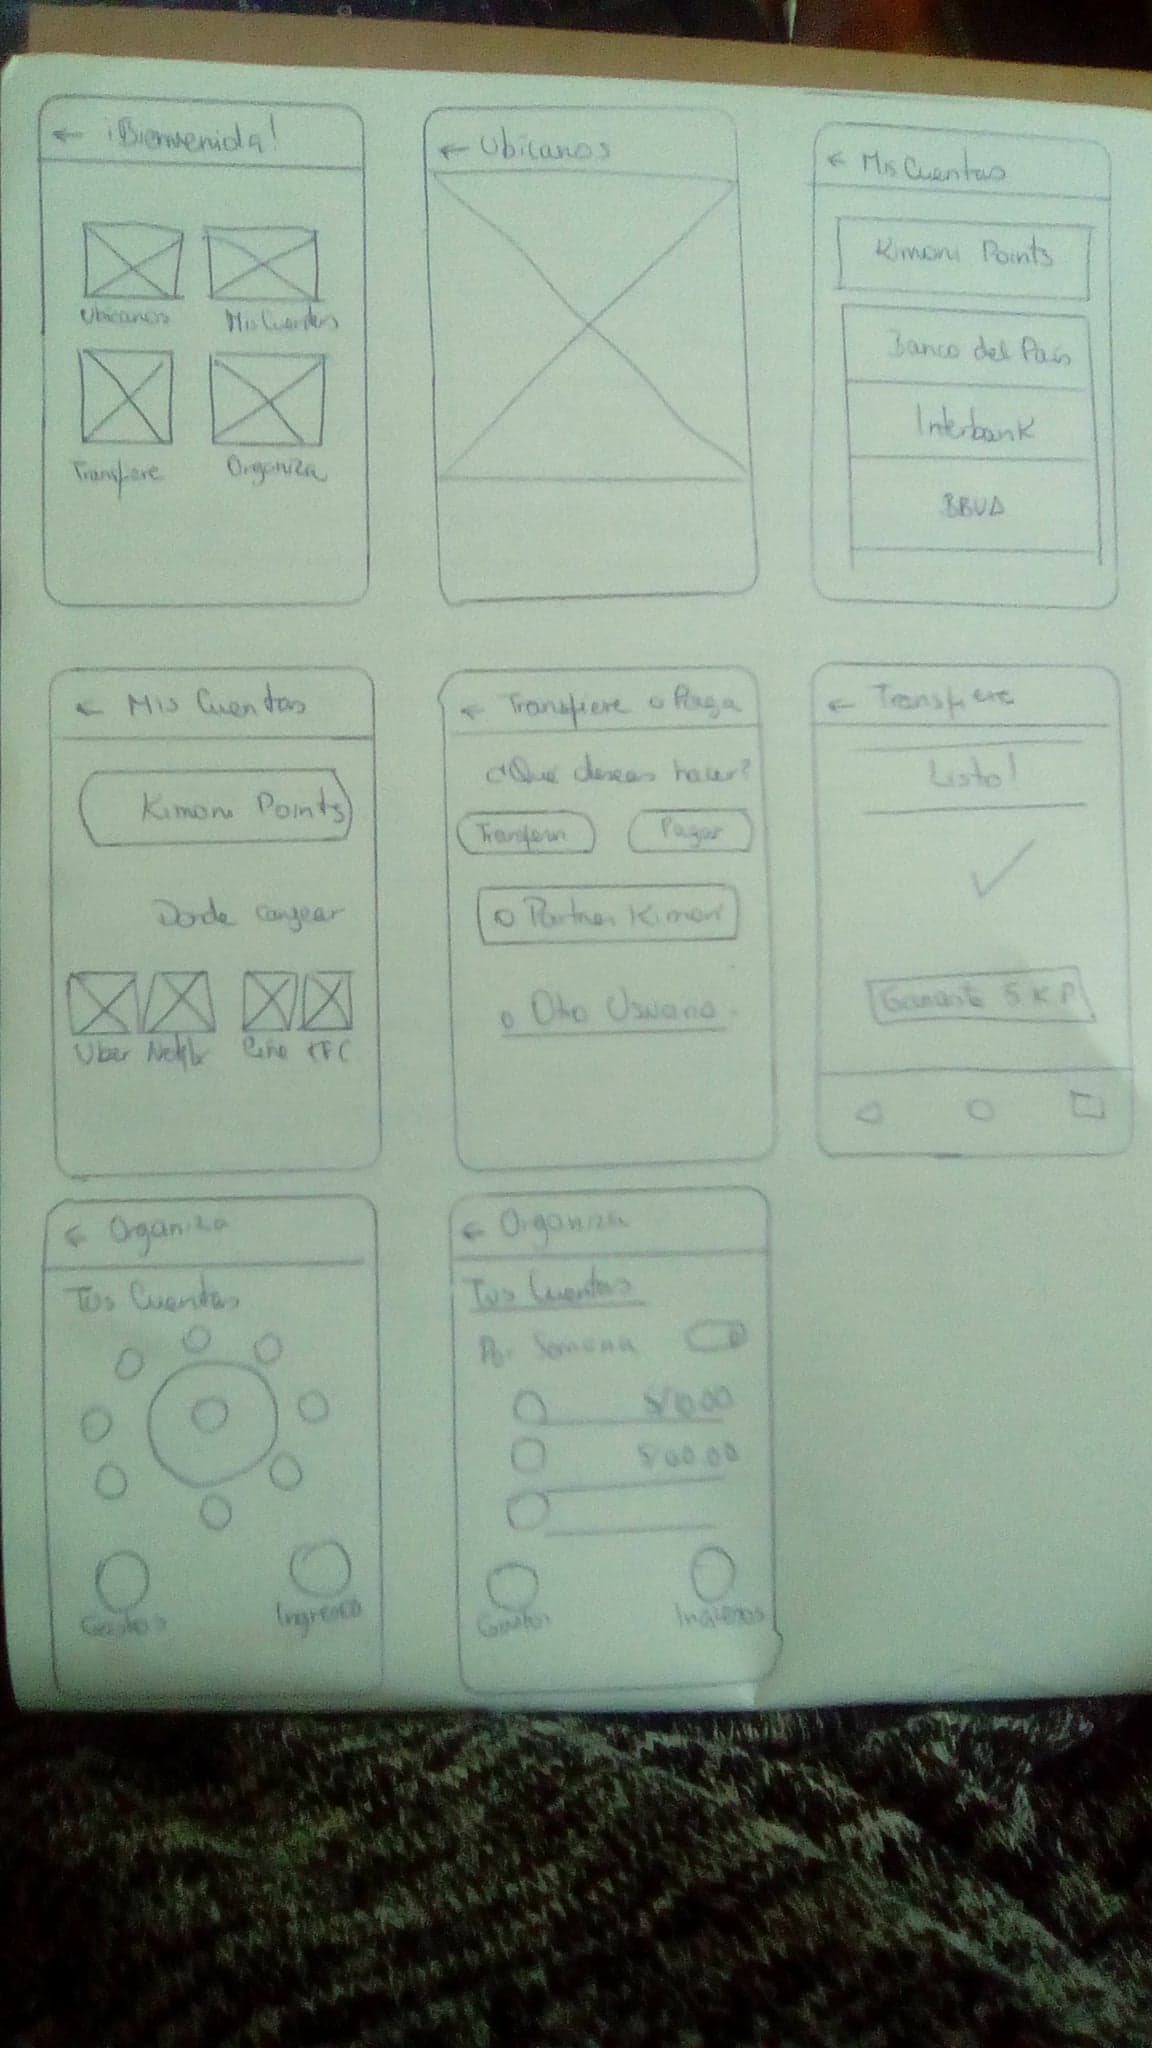 ← ¡Bienvenida!
Ubicanos Mis Cuentas
Transfiere Organiza
← Ubicanos
← Mis Cuentas
Kimoni Points
Banco del País
Interbank
BBVA
← Mis Cuentas
Kimoni Points
Donde canjear
Uber Netflix Cine KFC
← Transfiere o Paga
¿Qué deseas hacer?
Transferir Pagar
Partner Kimoni
Otro Usuario
← Transfiere
Listo!
Ganaste 5 KP
← Organiza
Tus Cuentas
Gastos Ingresos
← Organiza
Tus Cuentas
Por Semana
Gastos Ingresos